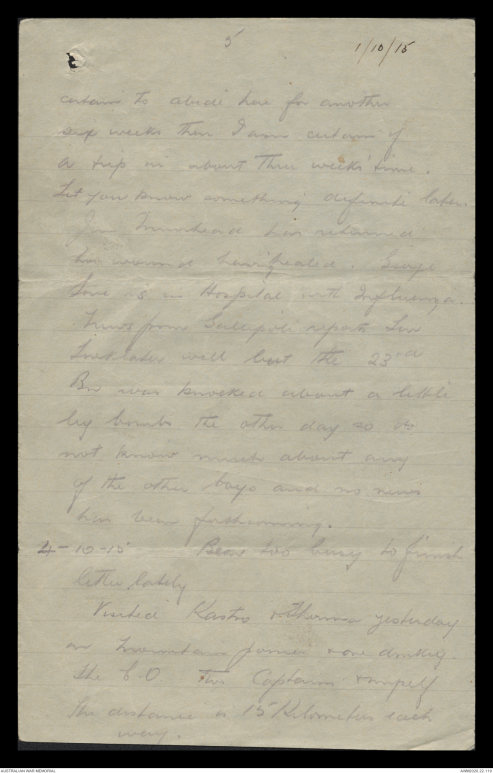 5
1/10/15
certain to abide here for another
six weeks then I am certain of
a trip in about three weeks' time.
Let you know something definite later.
Jim Muirhead has returned
his wound having healed. George
Love is in Hospital with Influenza.
News from Gallipoli reports
well but the 23rd
Bn was knocked about a little
by bombs the other day so do
not know much about any
of the other boys and no news
has been forthcoming.
4-10-15 Been too busy to finish
letter lately
Visited Kastro & Therma yesterday
on mountain ponies
the C.O. Two Captains & myself
the distance is 15 Kilometres each
way.
AUSTRALIAN WAR MEMORIAL